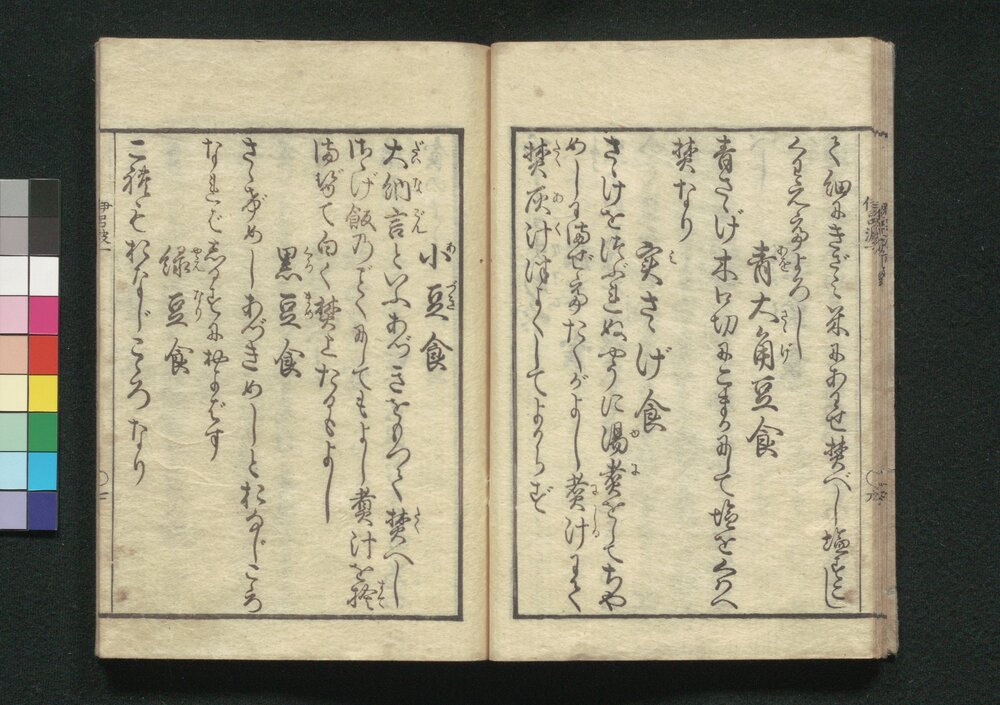 く細にきざミ米にあハせ焚べし塩をすこし
くわえ焚よろし
青大角豆食
青さゝげ木口切にこまかにして塩をくわへ
焚なり
実さゝげ食
さゝげをつぶれぬやうに湯煮をしてちや
めしにまぜ焚たるがよし煮汁にて
焚灰汁つよくしてよからず
小豆食
大納言といふあづきをもつて焚べし
さゝげ飯のごとくにしてもよし煮汁を捨
まぜて白く焚上たるもよし
黒豆食
さゝげめしあづきめしとおなじこゝろ
なればしるすにおよばず
緑豆食
二種もおなじこゝろなり